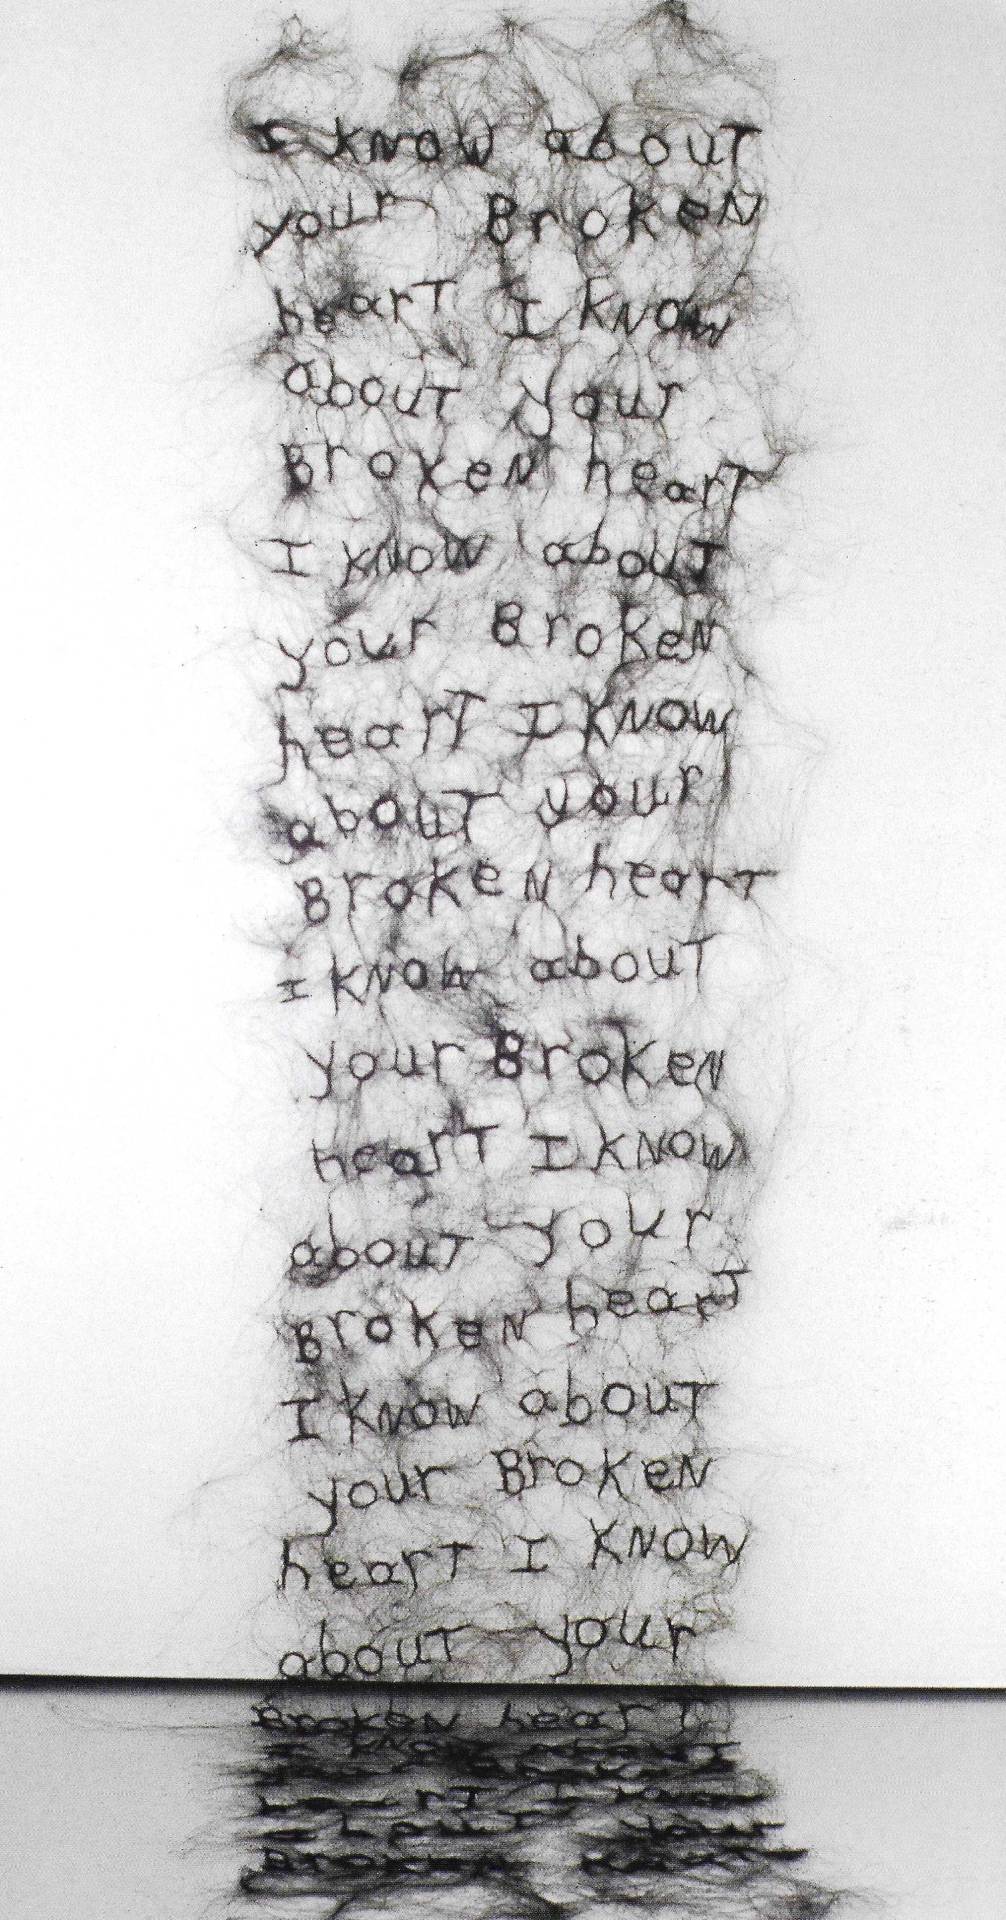 I KNOW abouT
your BroKeN
hearT I KNOW
abouT your
BroKeN hearT
I KNOW abouT
your BroKeN
hearT I KNOW
abouT your
BroKeN hearT
I KNOW abouT
your BroKeN
hearT I KNOW
abouT your
BroKeN hearT
I KNOW abouT
your BroKeN
hearT I KNOW
abouT your
BroKeN hearT
I KNOW abouT
hearT I KNOW
abouT your
BroKeN hearT